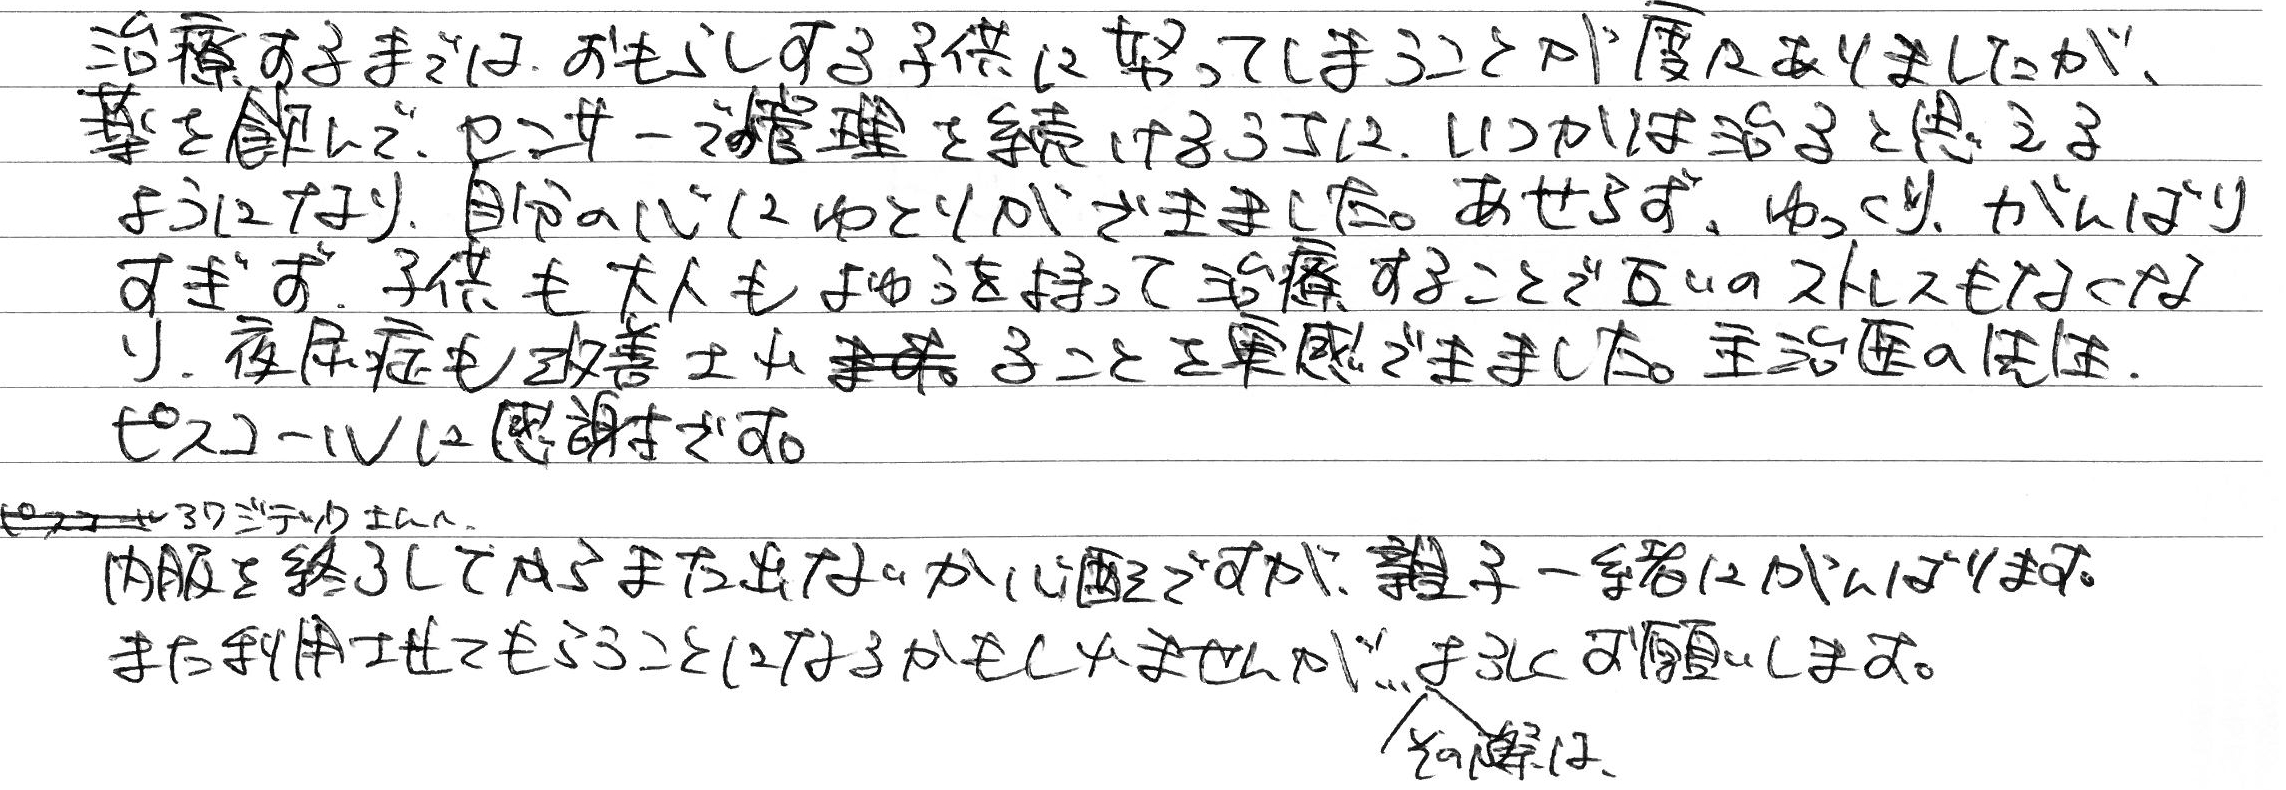 治療するまでは、おもらしする子供に怒ってしまうことが度々ありましたが、
薬を飲んで、センサーで管理を続けるうちに、いつかは治ると思える
ようになり、自分の心にゆとりができました。あせらず、ゆっくり、がんばり
すぎず、子供も大人もよゆうを持って治療することで互いのストレスもなくな
り、夜尿症も改善されることを実感できました。主治医の先生、
ピスコールに感謝です。
ワジテックさんへ
内服を終了してからまた出ないか心配ですが、親子一緒にがんばります。
また利用させてもらうことになるかもしれませんが…よろしくお願いします。
その際は、